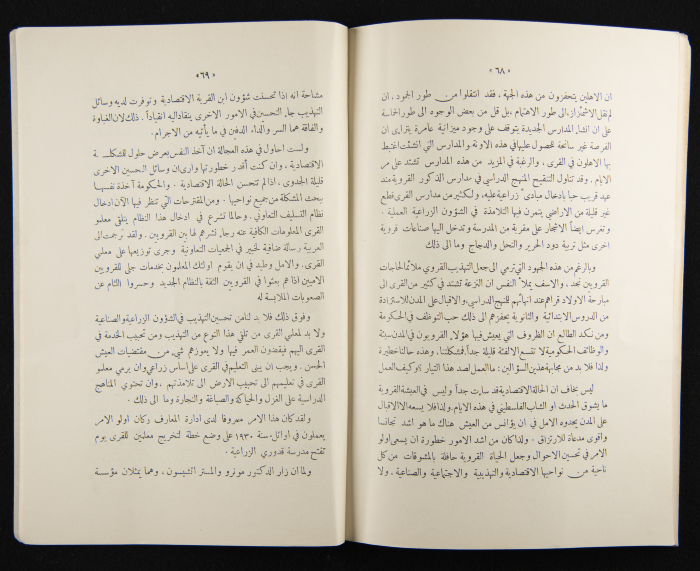 «٦٨»
ان الاهلين يتحفزون من هذه الجهة. فقد انتقلوا من طور الجمود. ان
لم نقل الاشمئزاز، الى طور الاهتمام، بل قل من بعض الوجوه الى طور الحماسة
على ان انشاء المدارس الجديدة يتوقف على وجود ميزانية عامرة يتراءى ان
الفرصة غير سانحة للحصول عليها في هذه الاونة والمدارس التي انشئت اغتبط
بها الاهلون في القرى، والرغبة في المزيد من هذه المدارس تشتد على مر
الايام. وقد تناول التنقيح المنهج الدراسي في مدارس الذكور القروية منذ
عهد قريب حبا بادخال مبادىء زراعية عليه، ولكثير من مدارس القرى قطع
غير قليلة من الاراضي يتمرن فيها التلامذة في الشؤون الزراعية العملية.
وتغرس ايضاً الاشجار على مقربة من المدرسة وتدخل اليها صناعات قروية
اخرى مثل تربية دود الحرير والنحل والدجاج وما الى ذلك
وبالرغم من هذه الجهود التي ترمي الى جعل التهذيب القروي ملائماً لحاجات
القرويين نجد، والاسف يملأ النفس ان النزعة تشتد في كثير من القرى الى
مبارحة الاولاد قراهم عند انهائهم للمنهج الدراسي والاقبال على المدن للاستزادة
من الدروس الابتدائية والثانوية يحفزهم الى ذلك حب التوظف في الحكومة
ومن نكد الطالع ان الظروف التي يعيش فيها هؤلاء القرويون في المدن سيئة
والوظائف الحكومية لا تتسع الا لفئة قليلة جداً فمشكلتنا، وهذه حالنا خطيرة
ولذا فلا بد من مجابهة هذين السؤالين: ما العمل لصد هذا التيار؟ وكيف العمل
ليس بخاف ان الحالة الاقتصادية قد ساءت جداً وليس في العيشة القروية
ما يشوق الحدث او الشاب الفلسطيني في هذه الايام. ولذا فلا يسعه الا الاقبال
على المدن يحدوه الامل في ان يؤانس من العيش هناك ما هو اشد تجانسا
واقوى مدعاة للارتزاق. ولذا كان من اشد الامور خطورة ان يسعى اولو
الامر في تحسين الاحوال وجعل الحياة القروية حافلة بالمشوقات من كل
ناحية من نواحيها الاقتصادية والتهذيبية والاجتماعية والصناعية. ولا
«٦٩»
مشاحة انه اذا تحسنت شؤون ابن القرية الاقتصادية وتوفرت لديه وسائل
التهذيب جاء التحسين في الامور الاخرى ينقاد اليه انقياداً. ذلك لان الغباوة
والفاقة هما السر والداء الدفين في ما يأتيه من الاجرام.
ولست احاول في هذه العجالة ان آخذ النفس بعرض حلول للمشكلة
الاقتصادية، وان كنت أقدر خطورتها وارى ان وسائل التحسين الاخرى
قليلة الجدوى، اذا لم تتحسن الحالة الاقتصادية. والحكومة آخذة نفسها
ببحث المشكلة من جميع نواحيها. ومن المقترحات التي تنظر فيها الآن ادخال
نظام التسليف التعاوني. وحالما تشرع في ادخال هذا النظام يتلقى معلمو
القرى المعلومات الكافية عنه رجاء نشرهم لها بين القرويين. ولقد ترجمت الى
العربية رسالة ضافية لخبير في الجمعيات التعاونية وجرى توزيعها على معلمي
القرى. والامل وطيد في ان يقوم اولئك المعلمون بخدمات جلى للقرويين
الاميين اذا هم بعثوا في القرويين الثقة بالنظام الجديد وحسروا اللثام عن
الصعوبات الملابسة له
وفوق ذلك فلا بد لنا من تحسين التهذيب في الشؤون الزراعية والصناعية
ولا بد لمعلمي القرى من تلقي هذا النوع من التهذيب ومن تحبيب الخدمة في
القرى اليهم فيقضون العمر فيها ولا يعوزهم شيء من مقتضيات العيش
الحسن. ويجب ان يبنى التعليم في القرى على اساس زراعي وان يرمي معلمو
القرى في تعليمهم الى تحبيب الارض الى تلامذتهم، وان تحتوي المناهج
الدراسية على الغزل والحياكة والصباغة والنجارة وما الى ذلك.
ولقد كان هذا الامر معروفا لدى ادارة المعارف وكان اولو الامر
يعملون في اوائل سنة ١٩٣٠ على وضع خطة لتخريج معلمين للقرى يوم
تفتح مدرسة قدوري الزراعية.
ولما ان زار الدكتور مونرو والمستر وهما يمثلان مؤسسة